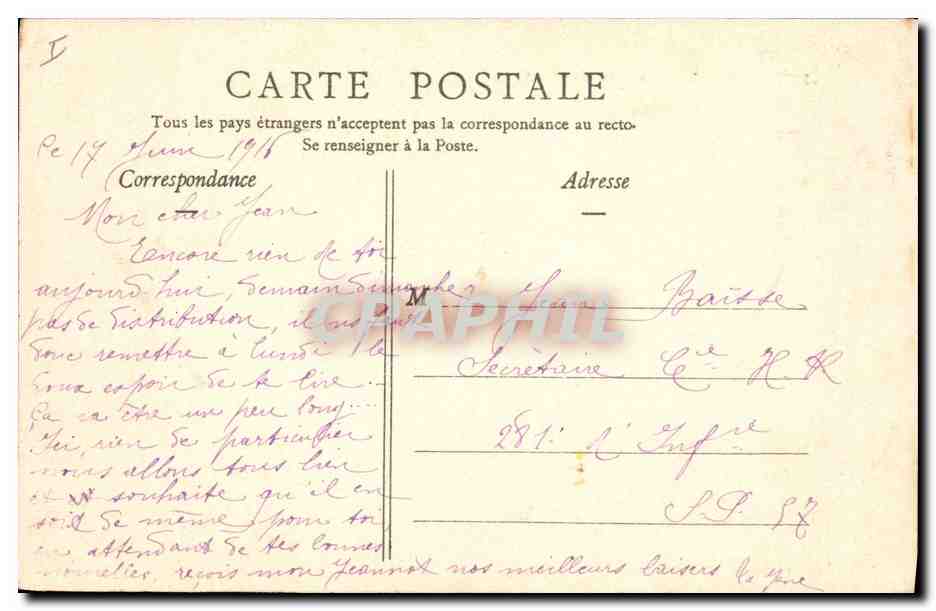 I
CARTE POSTALE
Tous les pays étrangers n'acceptent pas la correspondance au recto.
Se renseigner à la Poste.
Le 17 Juin 1916
Correspondance
Mon cher Jean
Encore rien de toi
aujourd'hui, demain dimanche
pas de distribution, il
donc remettre à lundi le
doux espoir de te lire..
Ça va être un peu long....
Ici, rien de particulier
nous allons tous bien
et souhaite qu'il en
soit de même pour toi,
en attendant de tes bonnes
nouvelles, reçois mon Jeannot nos meilleurs baisers
Adresse
M Jean Baïsse
Secrètaire Cie H. R
281. d'Infrie
S. P. 97
CPAPHIL